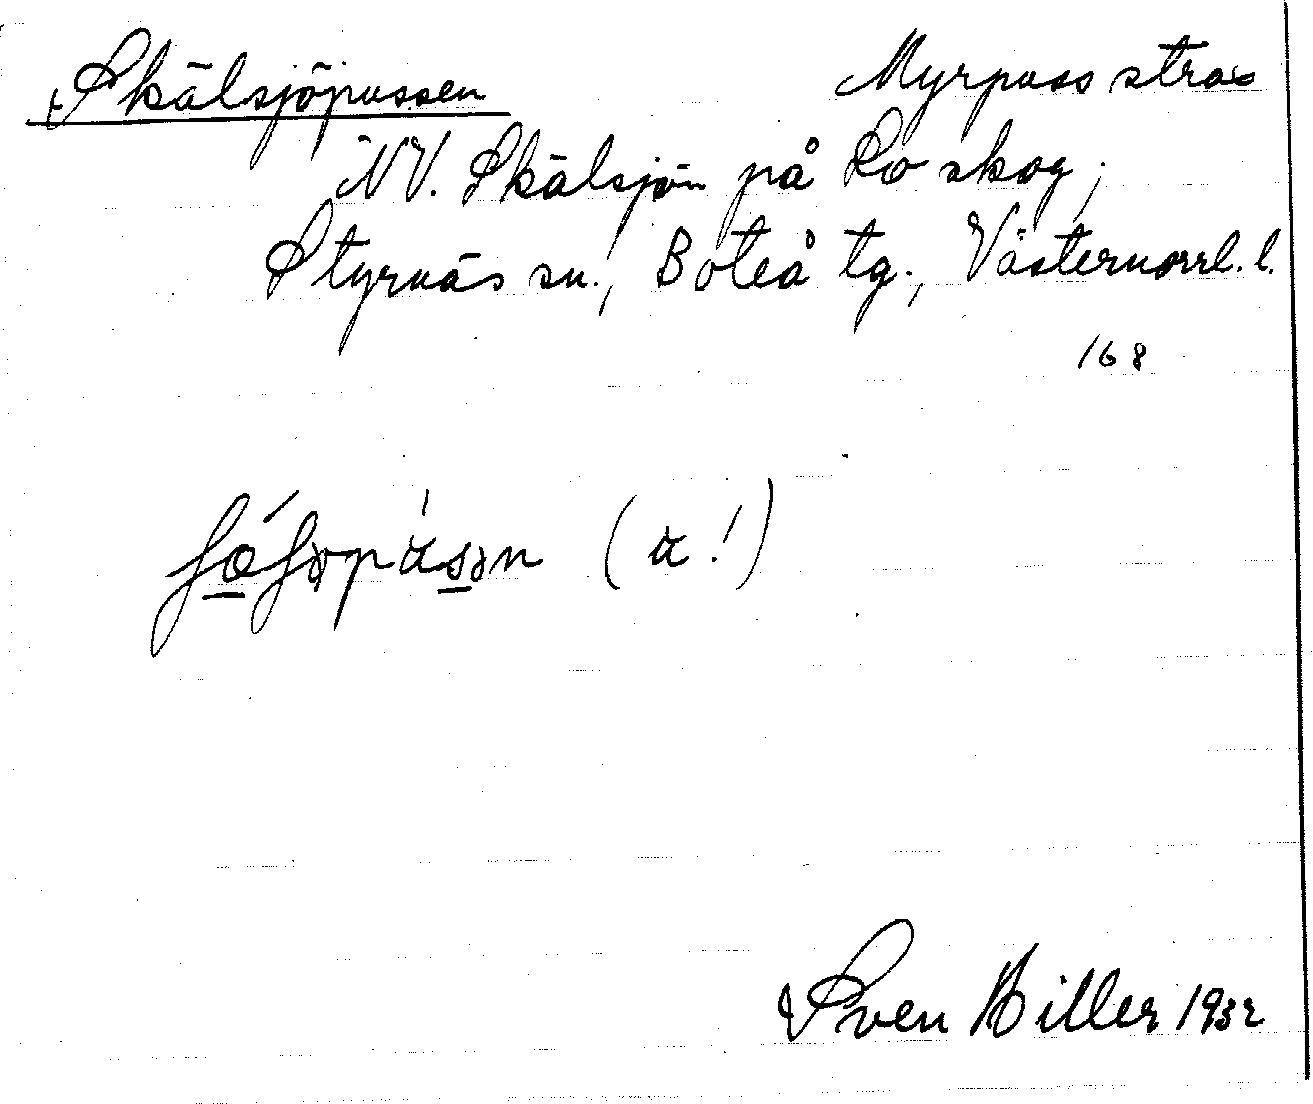 Skälsjöpussen Myrpuss strax
NV. Skälsjön på Lo skog,
Styrnäs sn., Boteå tg., Västernorrl. l.
168
Sven Hiller 1932